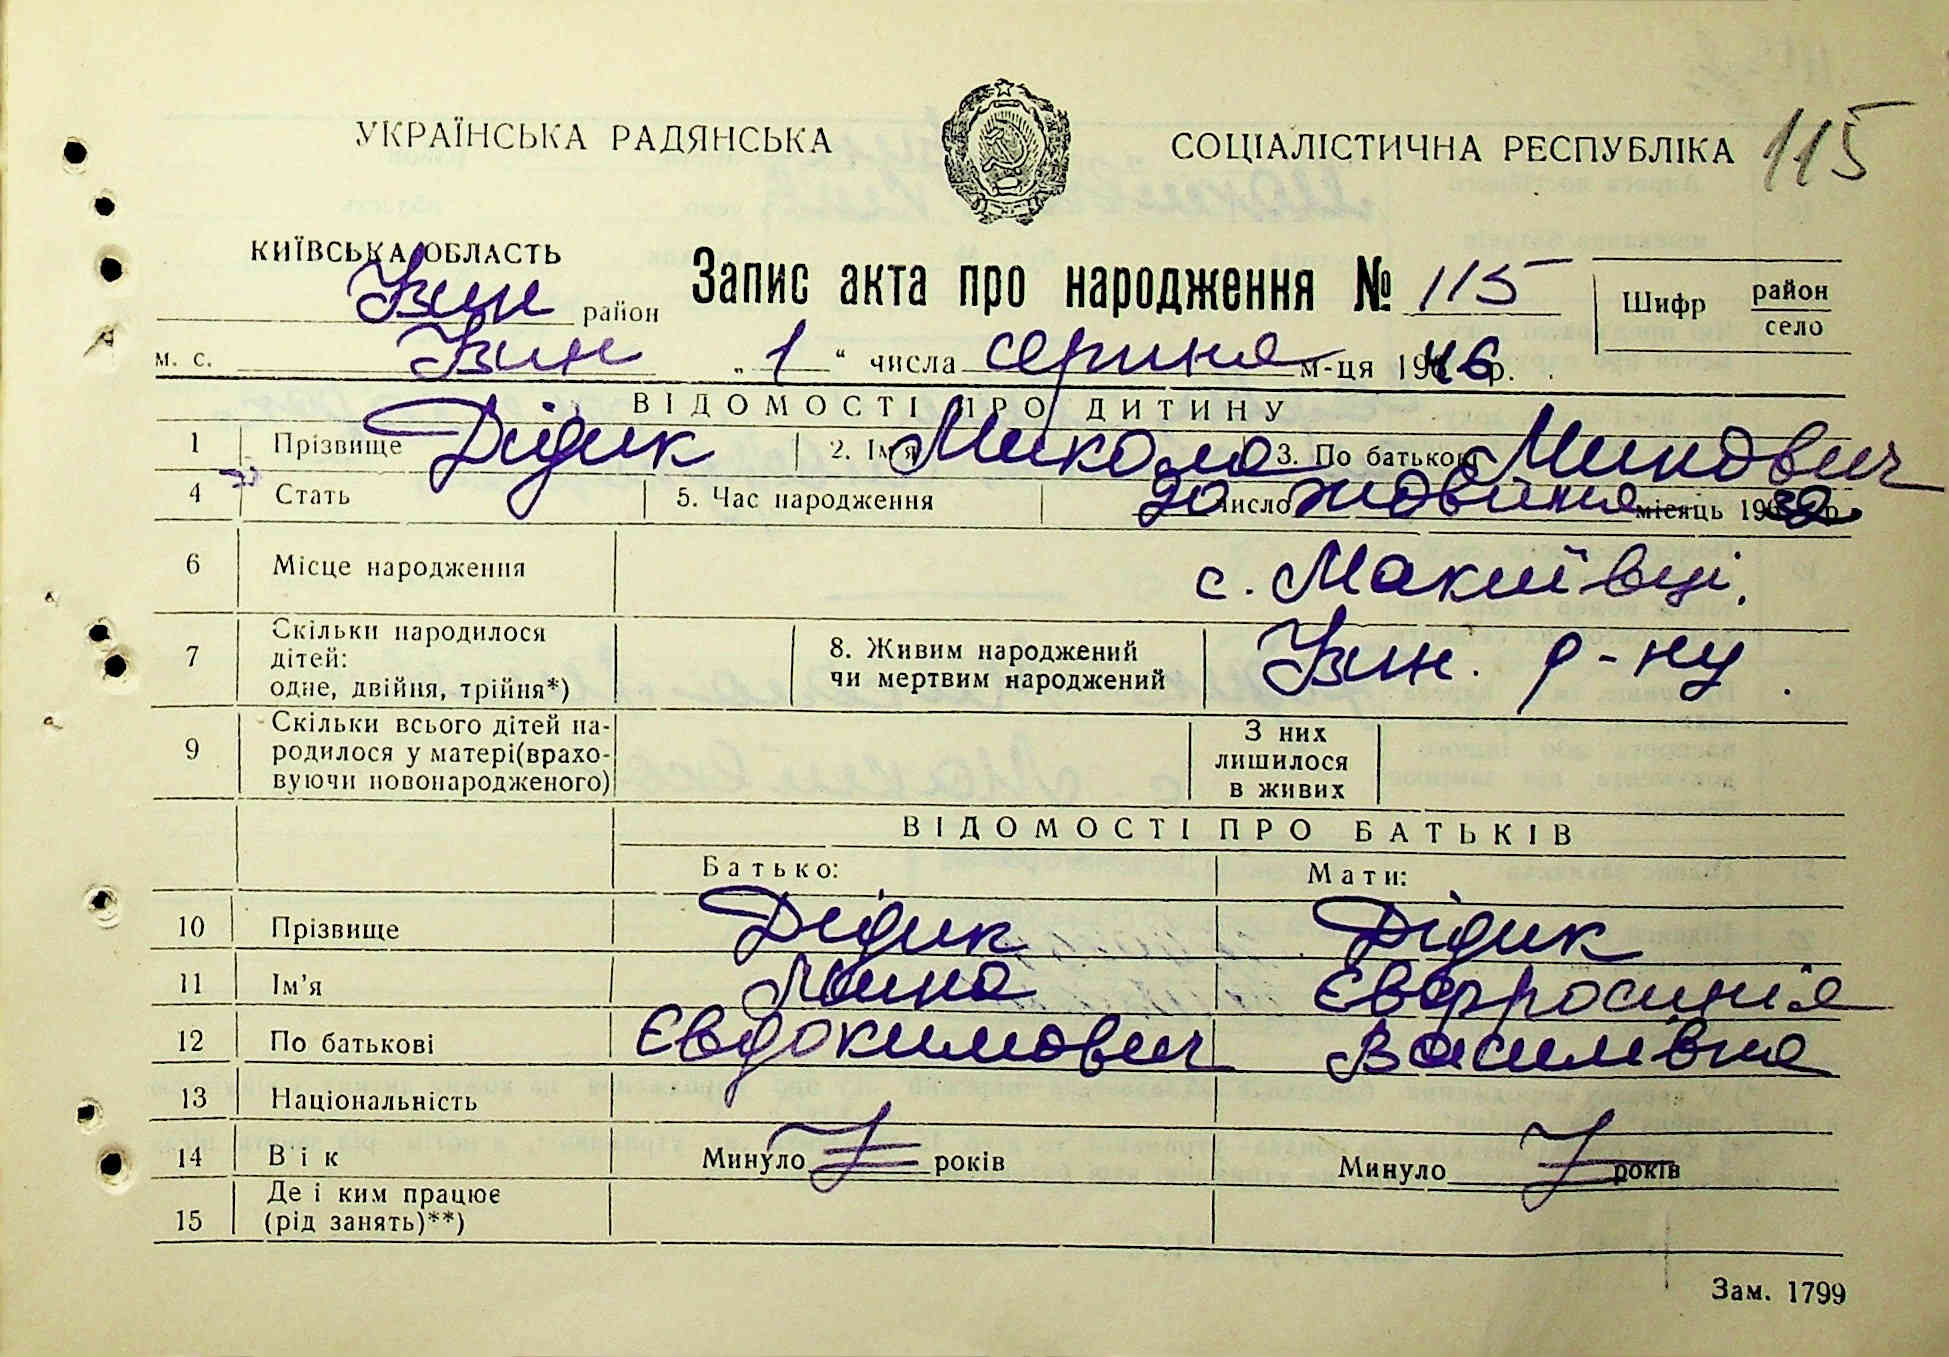 115
УКРАЇНСЬКА РАДЯНСЬКА СОЦІАЛІСТИЧНА РЕСПУБЛІКА
КИЇВСЬКА ОБЛАСТЬ
Узин район
Запис акта про народження № 115
Шифр район село
м. с. Узин „ 1 “ числа серпня м-ця 1946 р.
ВІДОМОСТІ ПРО ДИТИНУ
1 Прізвище Дідик 2. Ім'я Микола 3. По батькові Минович
4 Стать 5. Час народження 20 число жовтня місяць 1932 р.
6 Місце народження с. Макиївці,
Узин. р-ну.
7 Скільки народилося
дітей:
одне, двійня, трійня*)
8. Живим народжений
чи мертвим народжений
9 Скільки всього дітей на-
родилося у матері(врахо-
вуючи новонародженого)
З них
лишилося
в живих
ВІДОМОСТІ ПРО БАТЬКІВ
Батько: Мати:
10 Прізвище Дідик Дідик
11 Ім'я Мина Євфросинія
12 По батькові Євдокимович Василівна
13 Національність
14 Вік Минуло років Минуло років
15 Де і ким працює
(рід занять)**)
Зам. 1799